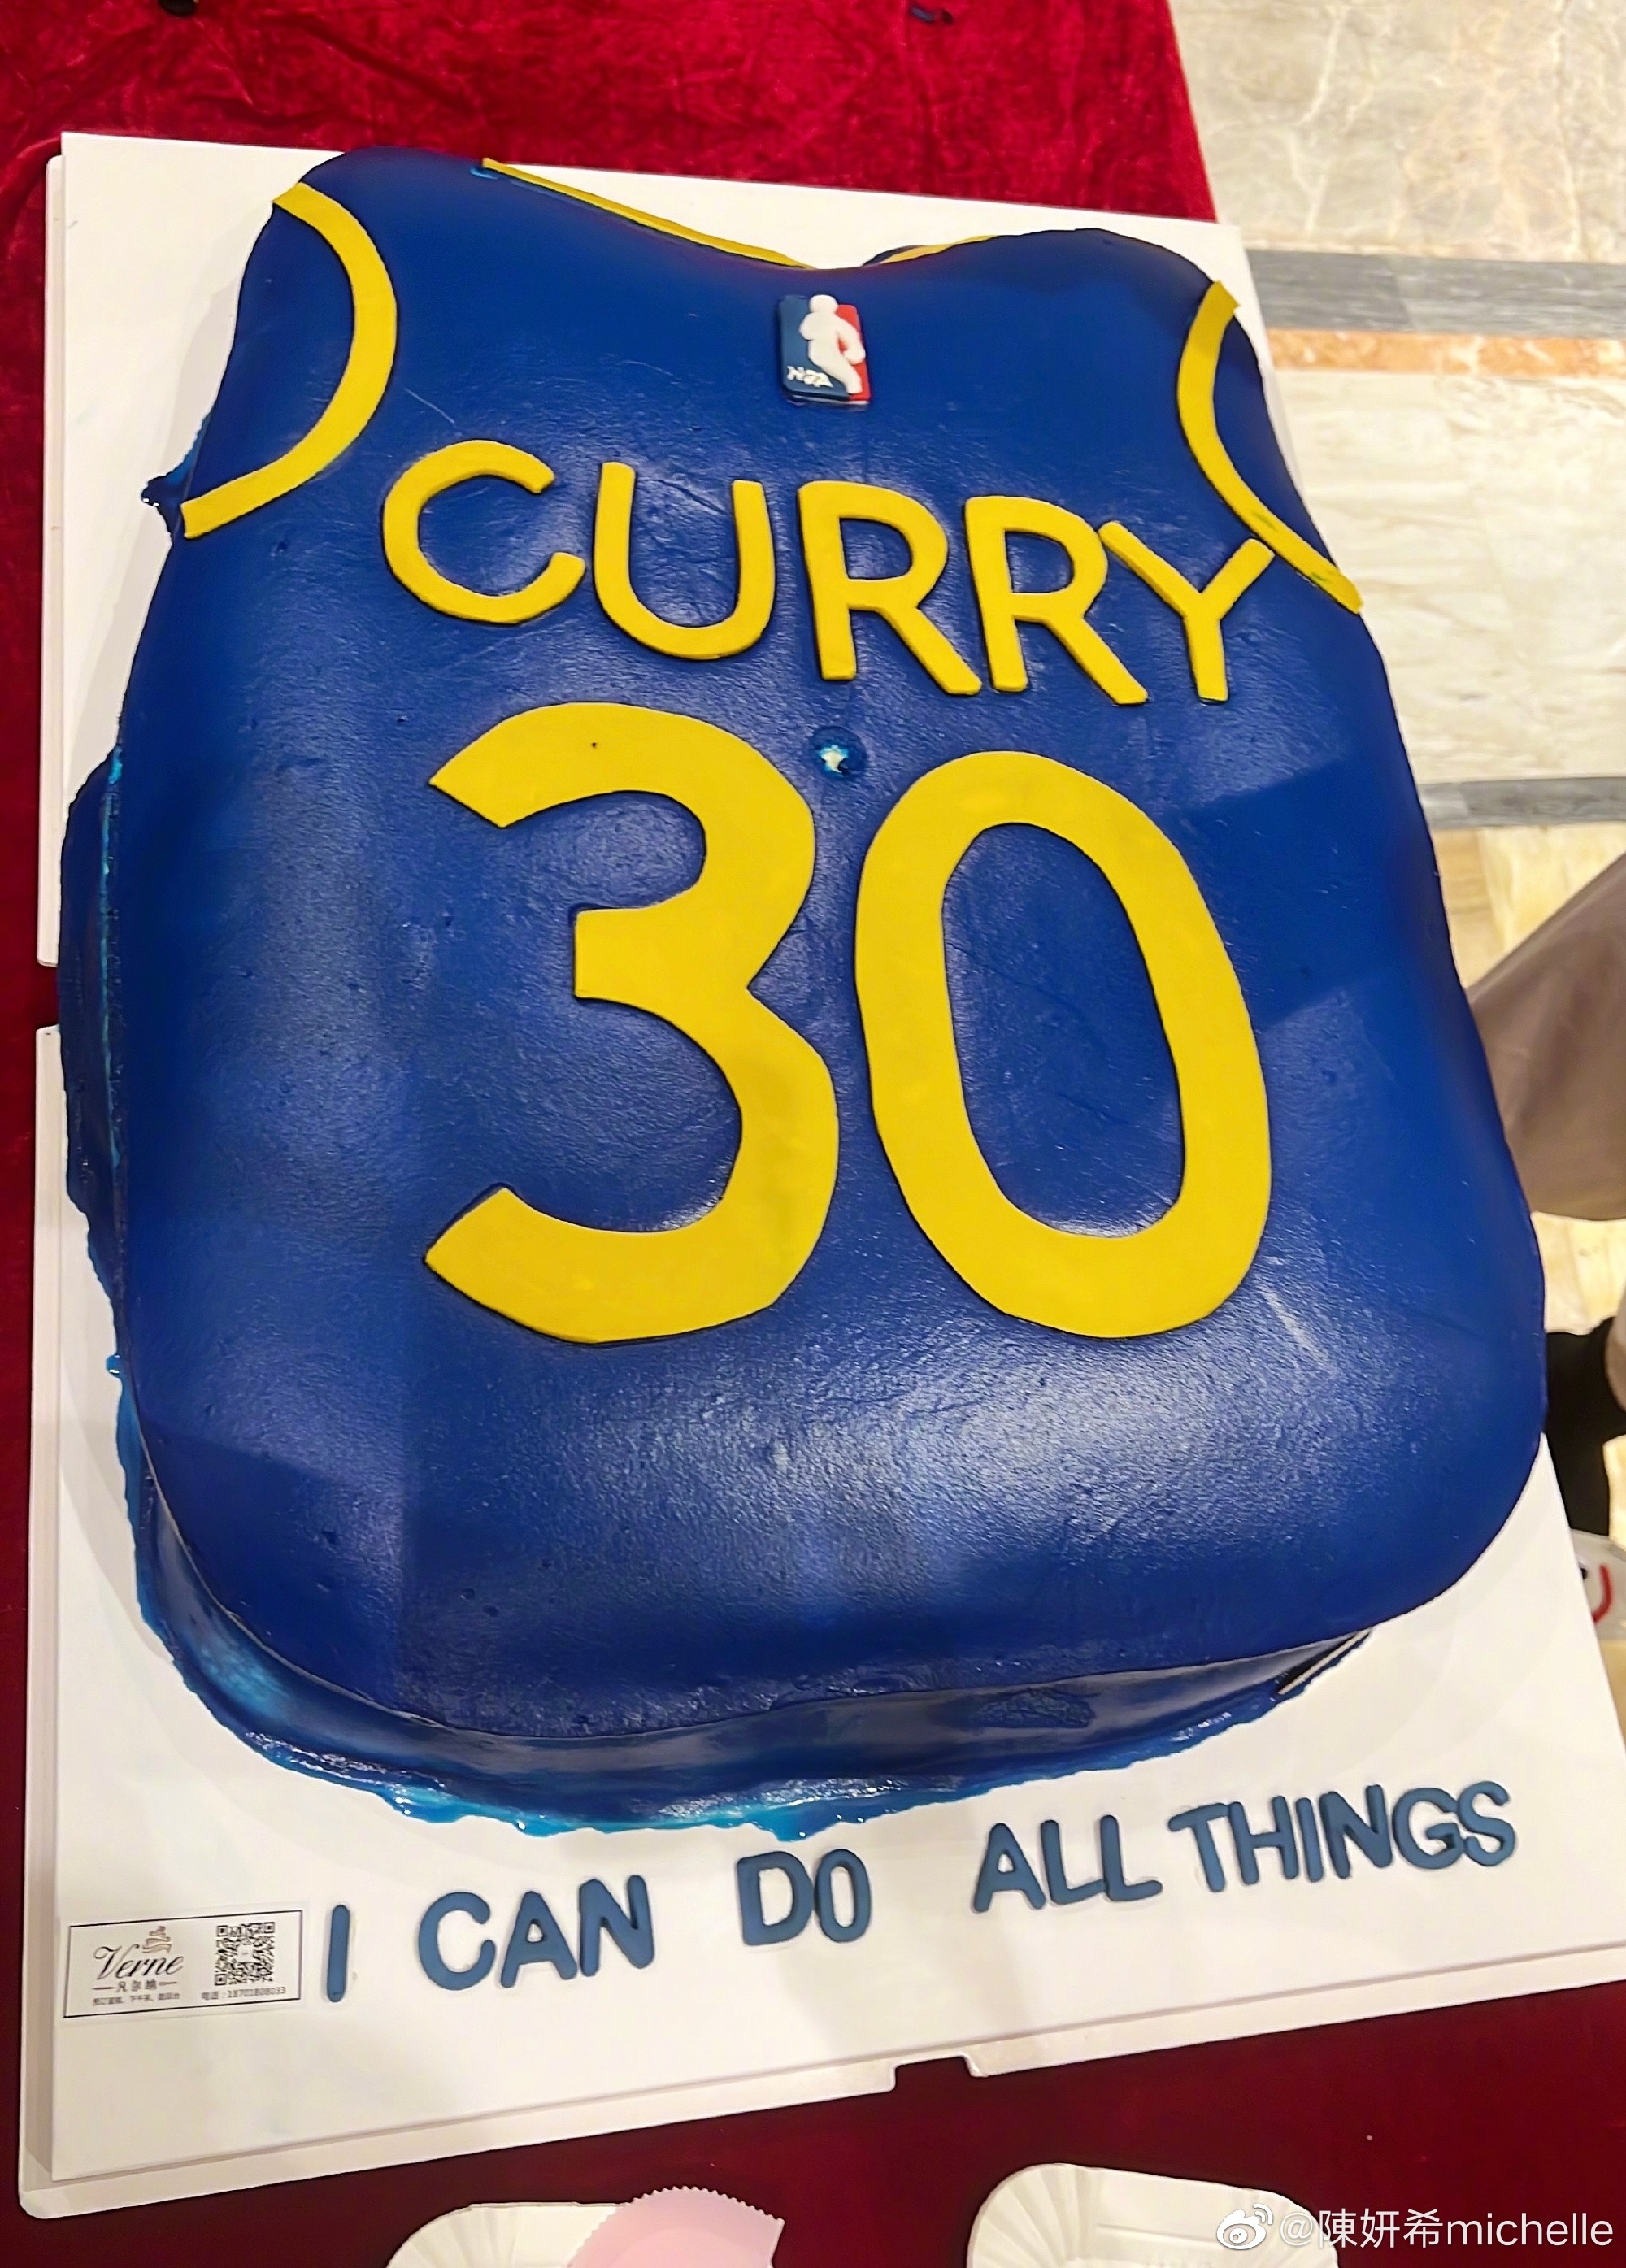 NBA
CURRY
30
I CAN DO ALL THINGS
Verne
凡尔纳
电话:18701808033
@陳妍希michelle